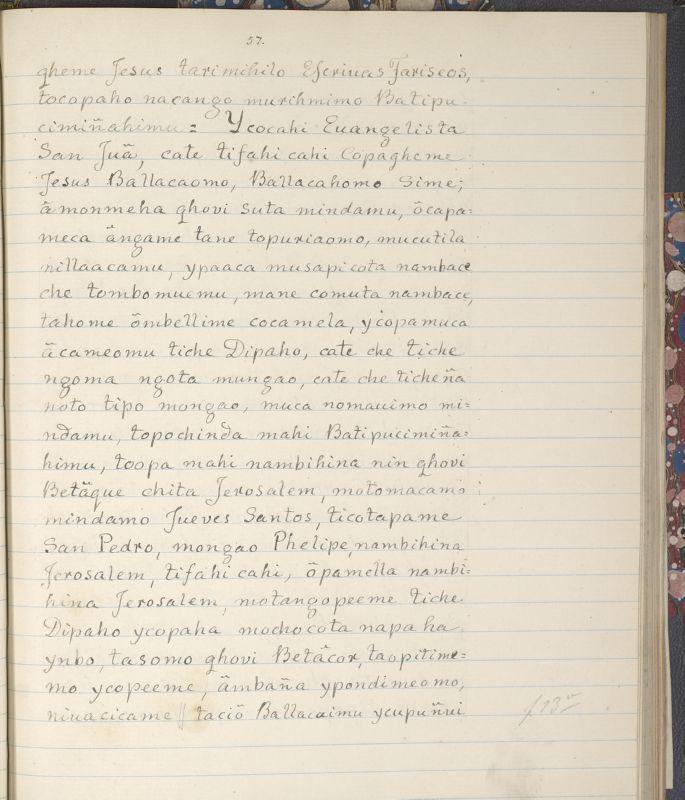 57.
qheme Jesus tarimihilo Escriuas Fariseos,
tocopaho nacango murihmimo Batipu-
cimiñahimu = Ycocahi Euangelista
San Juã, cate tifahi cahi Copagheme
Jesus Ballacaomo, Ballacahomo Sime;
ãmonmeha qhovi suta mindamu, õcapa=
meca ãngame tane topuriaomo, mucutila
nillaacamu, ypaaca musapicota nambace
che tombomuemu, mane comuta nambace,
tahome õmbellime cocamela, ycopamuca
ãcameomu tiche Dipaho, cate che tiche
ngoma ngota mungao, cate che ticheña
noto tipo mongao, muca nomauimo mi=
ndamu, topochinda mahi Batipucimiña=
himu, toopa mahi nambihina nin qhovi
Betãque chita Jerosalem, motomacamo
mindamo Jueves Santos, ticotapame
San Pedro, mongao Phelipe, nambihina
Jerosalem, tifahi cahi, õpamella nambi=
hina Jerosalem, motangopeeme tiche
Dipaho ycopaha mochocota napaha
ynbo, tasomo qhovi Betãcox, taopitime=
mo ycopeeme, ãmbaña ypondimeomo,
niuacicame || taciõ Ballacaimu ycupuñui